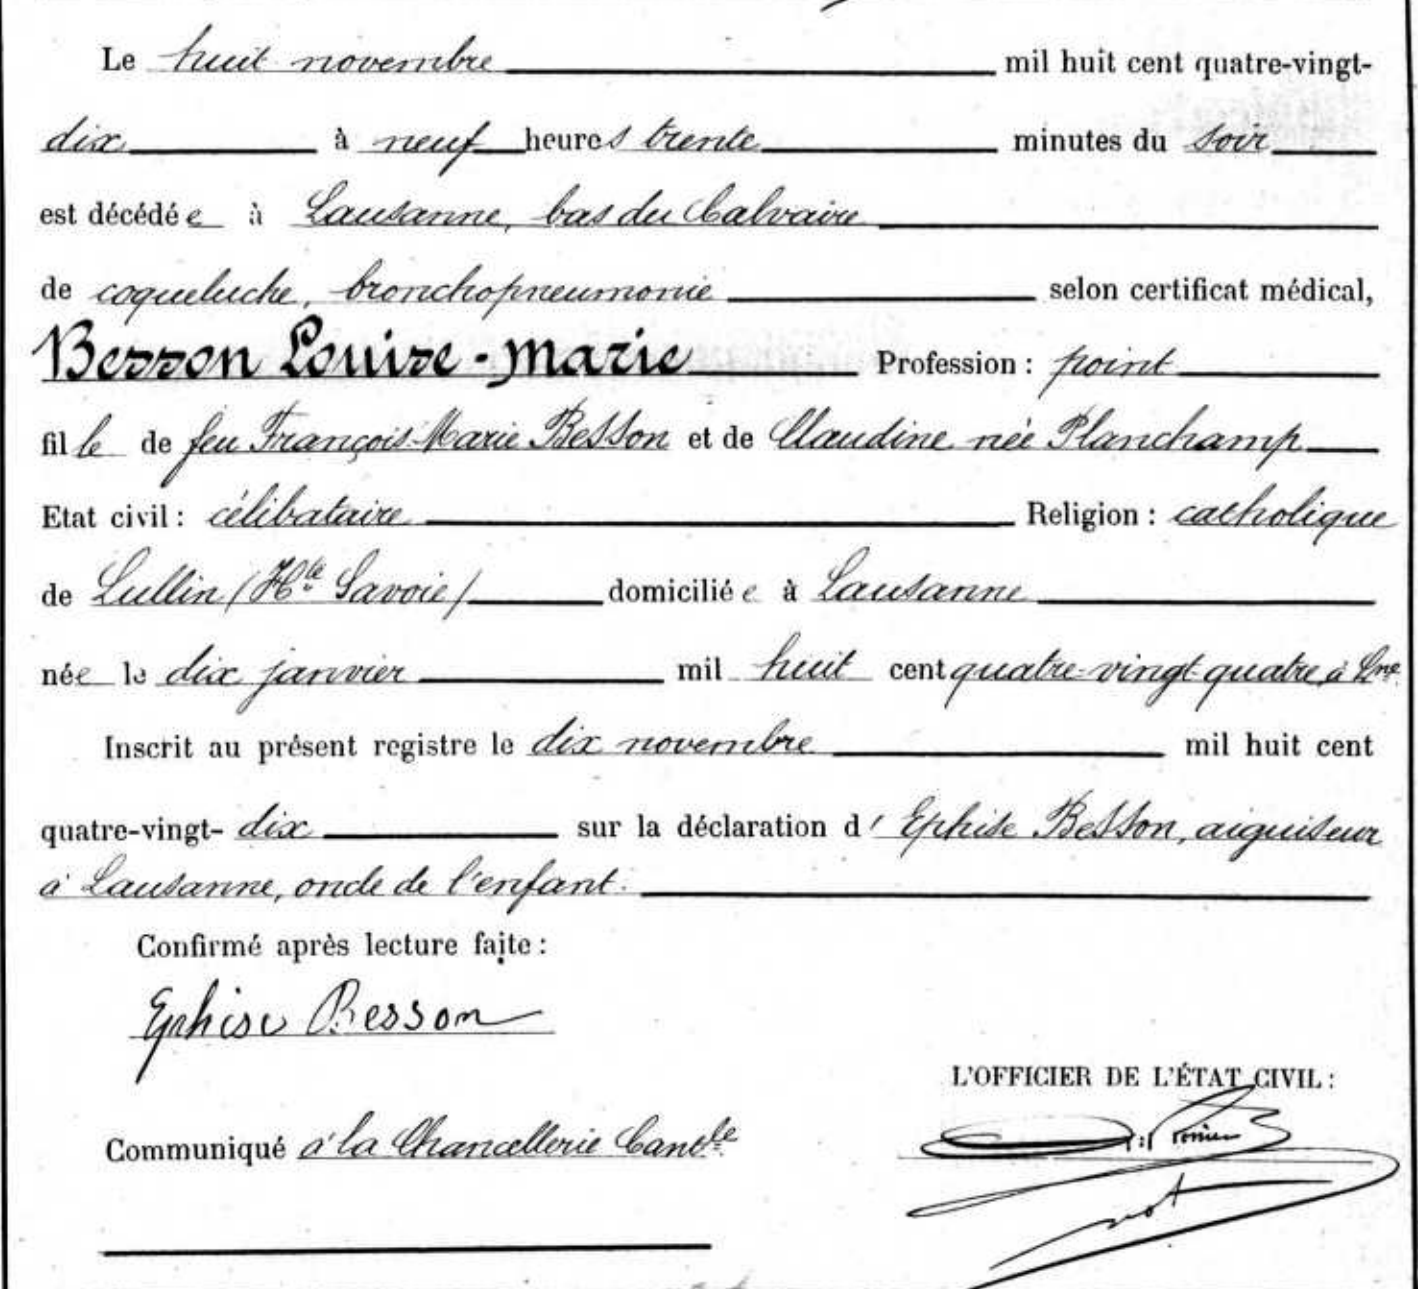 Le huit novembre mil huit cent quatre-vingt-
dix à neuf heures trente minutes du soir
est décédée à Lausanne, bas du Calvaire
de coqueluche, bronchopneumonie selon certificat médical,
Besson Louise-Marie Profession : point
fille de feu François-Marie Besson et de Claudine née Planchamp
Etat civil : célibataire Religion : catholique
de Lullin (Hte Savoie) domiciliée à Lausanne
née le dix janvier mil huit cent quatre-vingt-quatre à Lne
Inscrit au présent registre le dix novembre mil huit cent
quatre-vingt-dix sur la déclaration d'Ephise Besson, aiguiseur
à Lausanne, oncle de l'enfant.
Confirmé après lecture faite :
Ephise Besson
L'OFFICIER DE L'ÉTAT CIVIL :
Communiqué à la Chancellerie Cantle
not